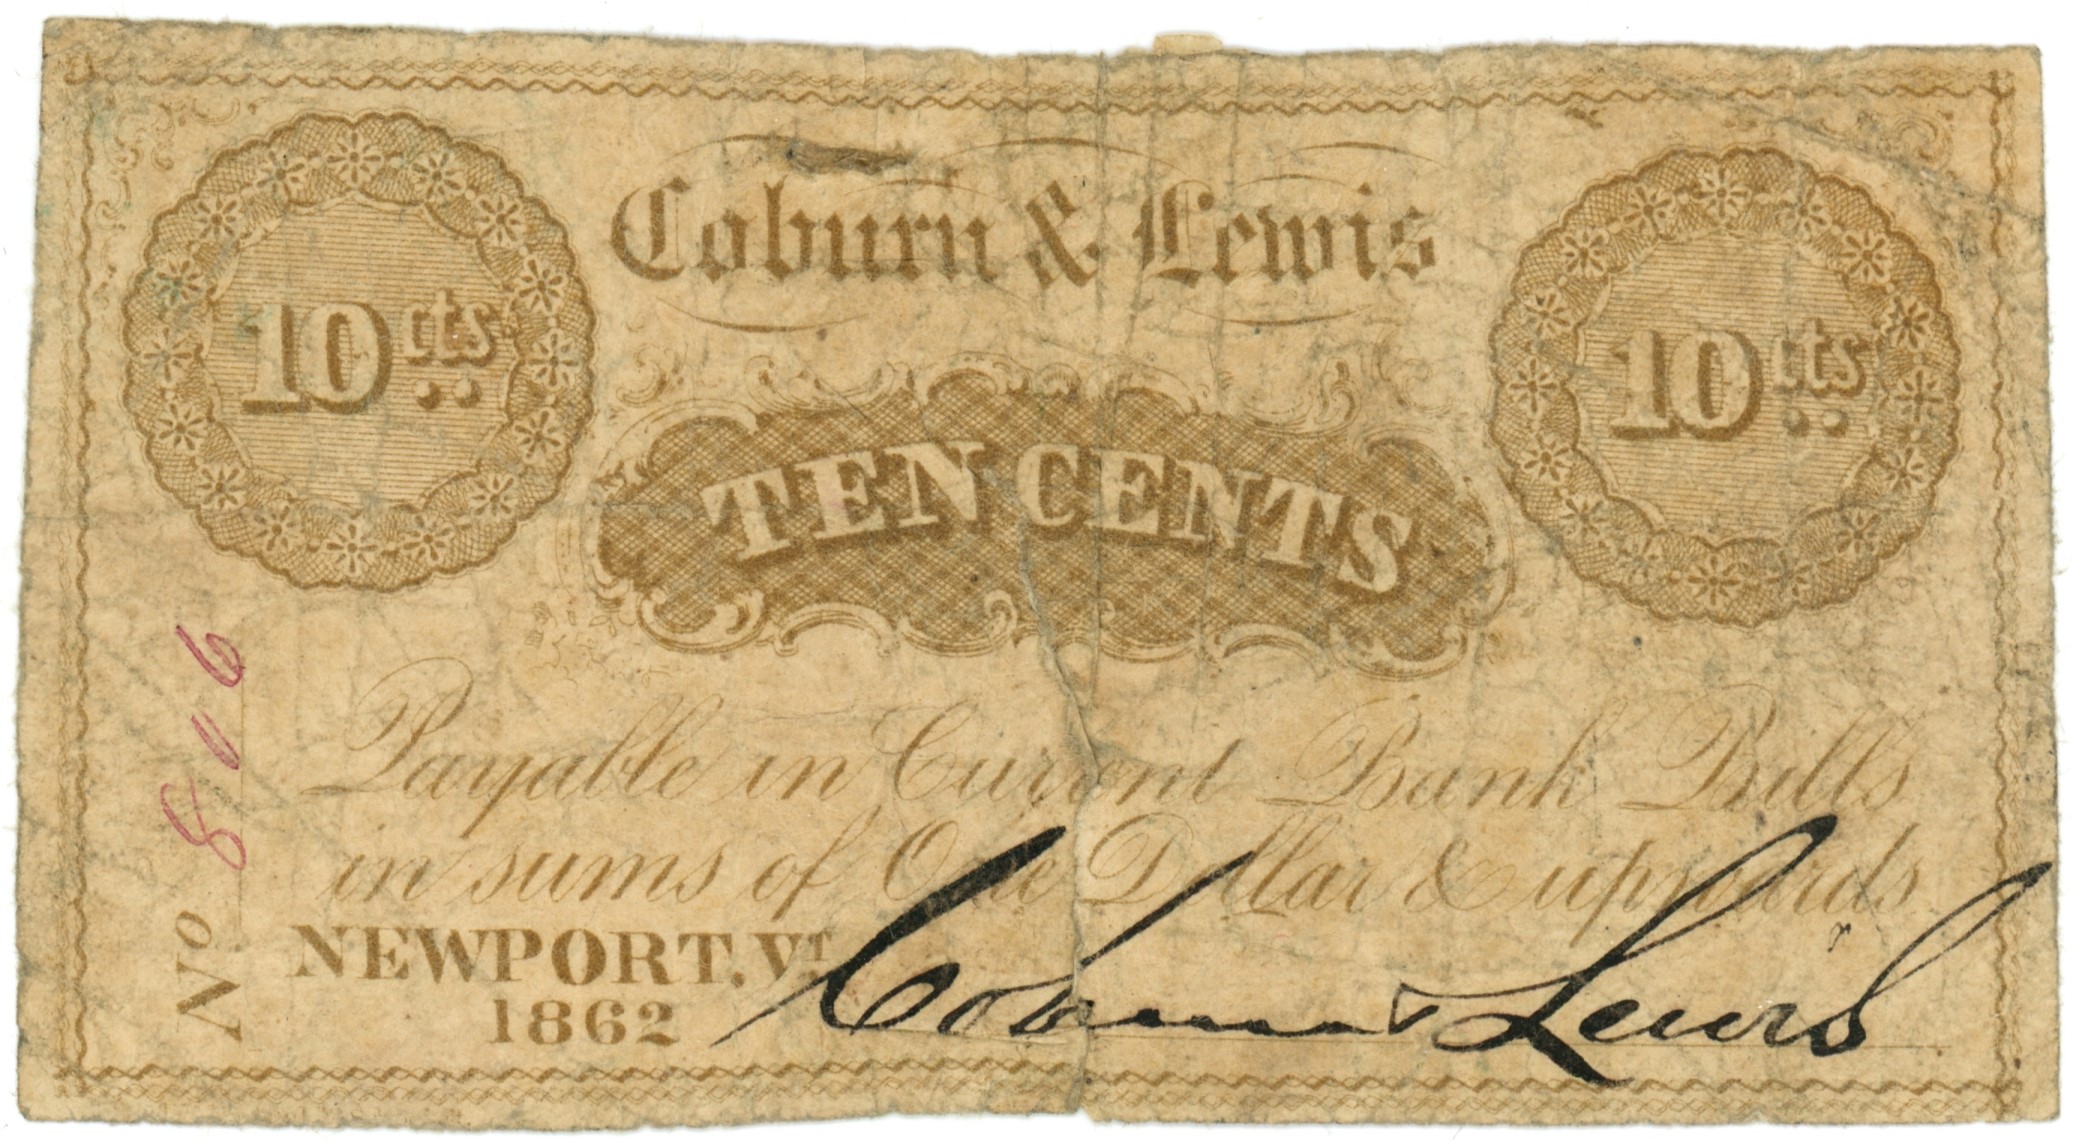 Coburn & Lewis
10 cts
10 cts
TEN CENTS
Payable in Current Bank Bills
in sums of One Dollar & upwards
NEWPORT, Vt
1862
No 806
Coburn & Lewis